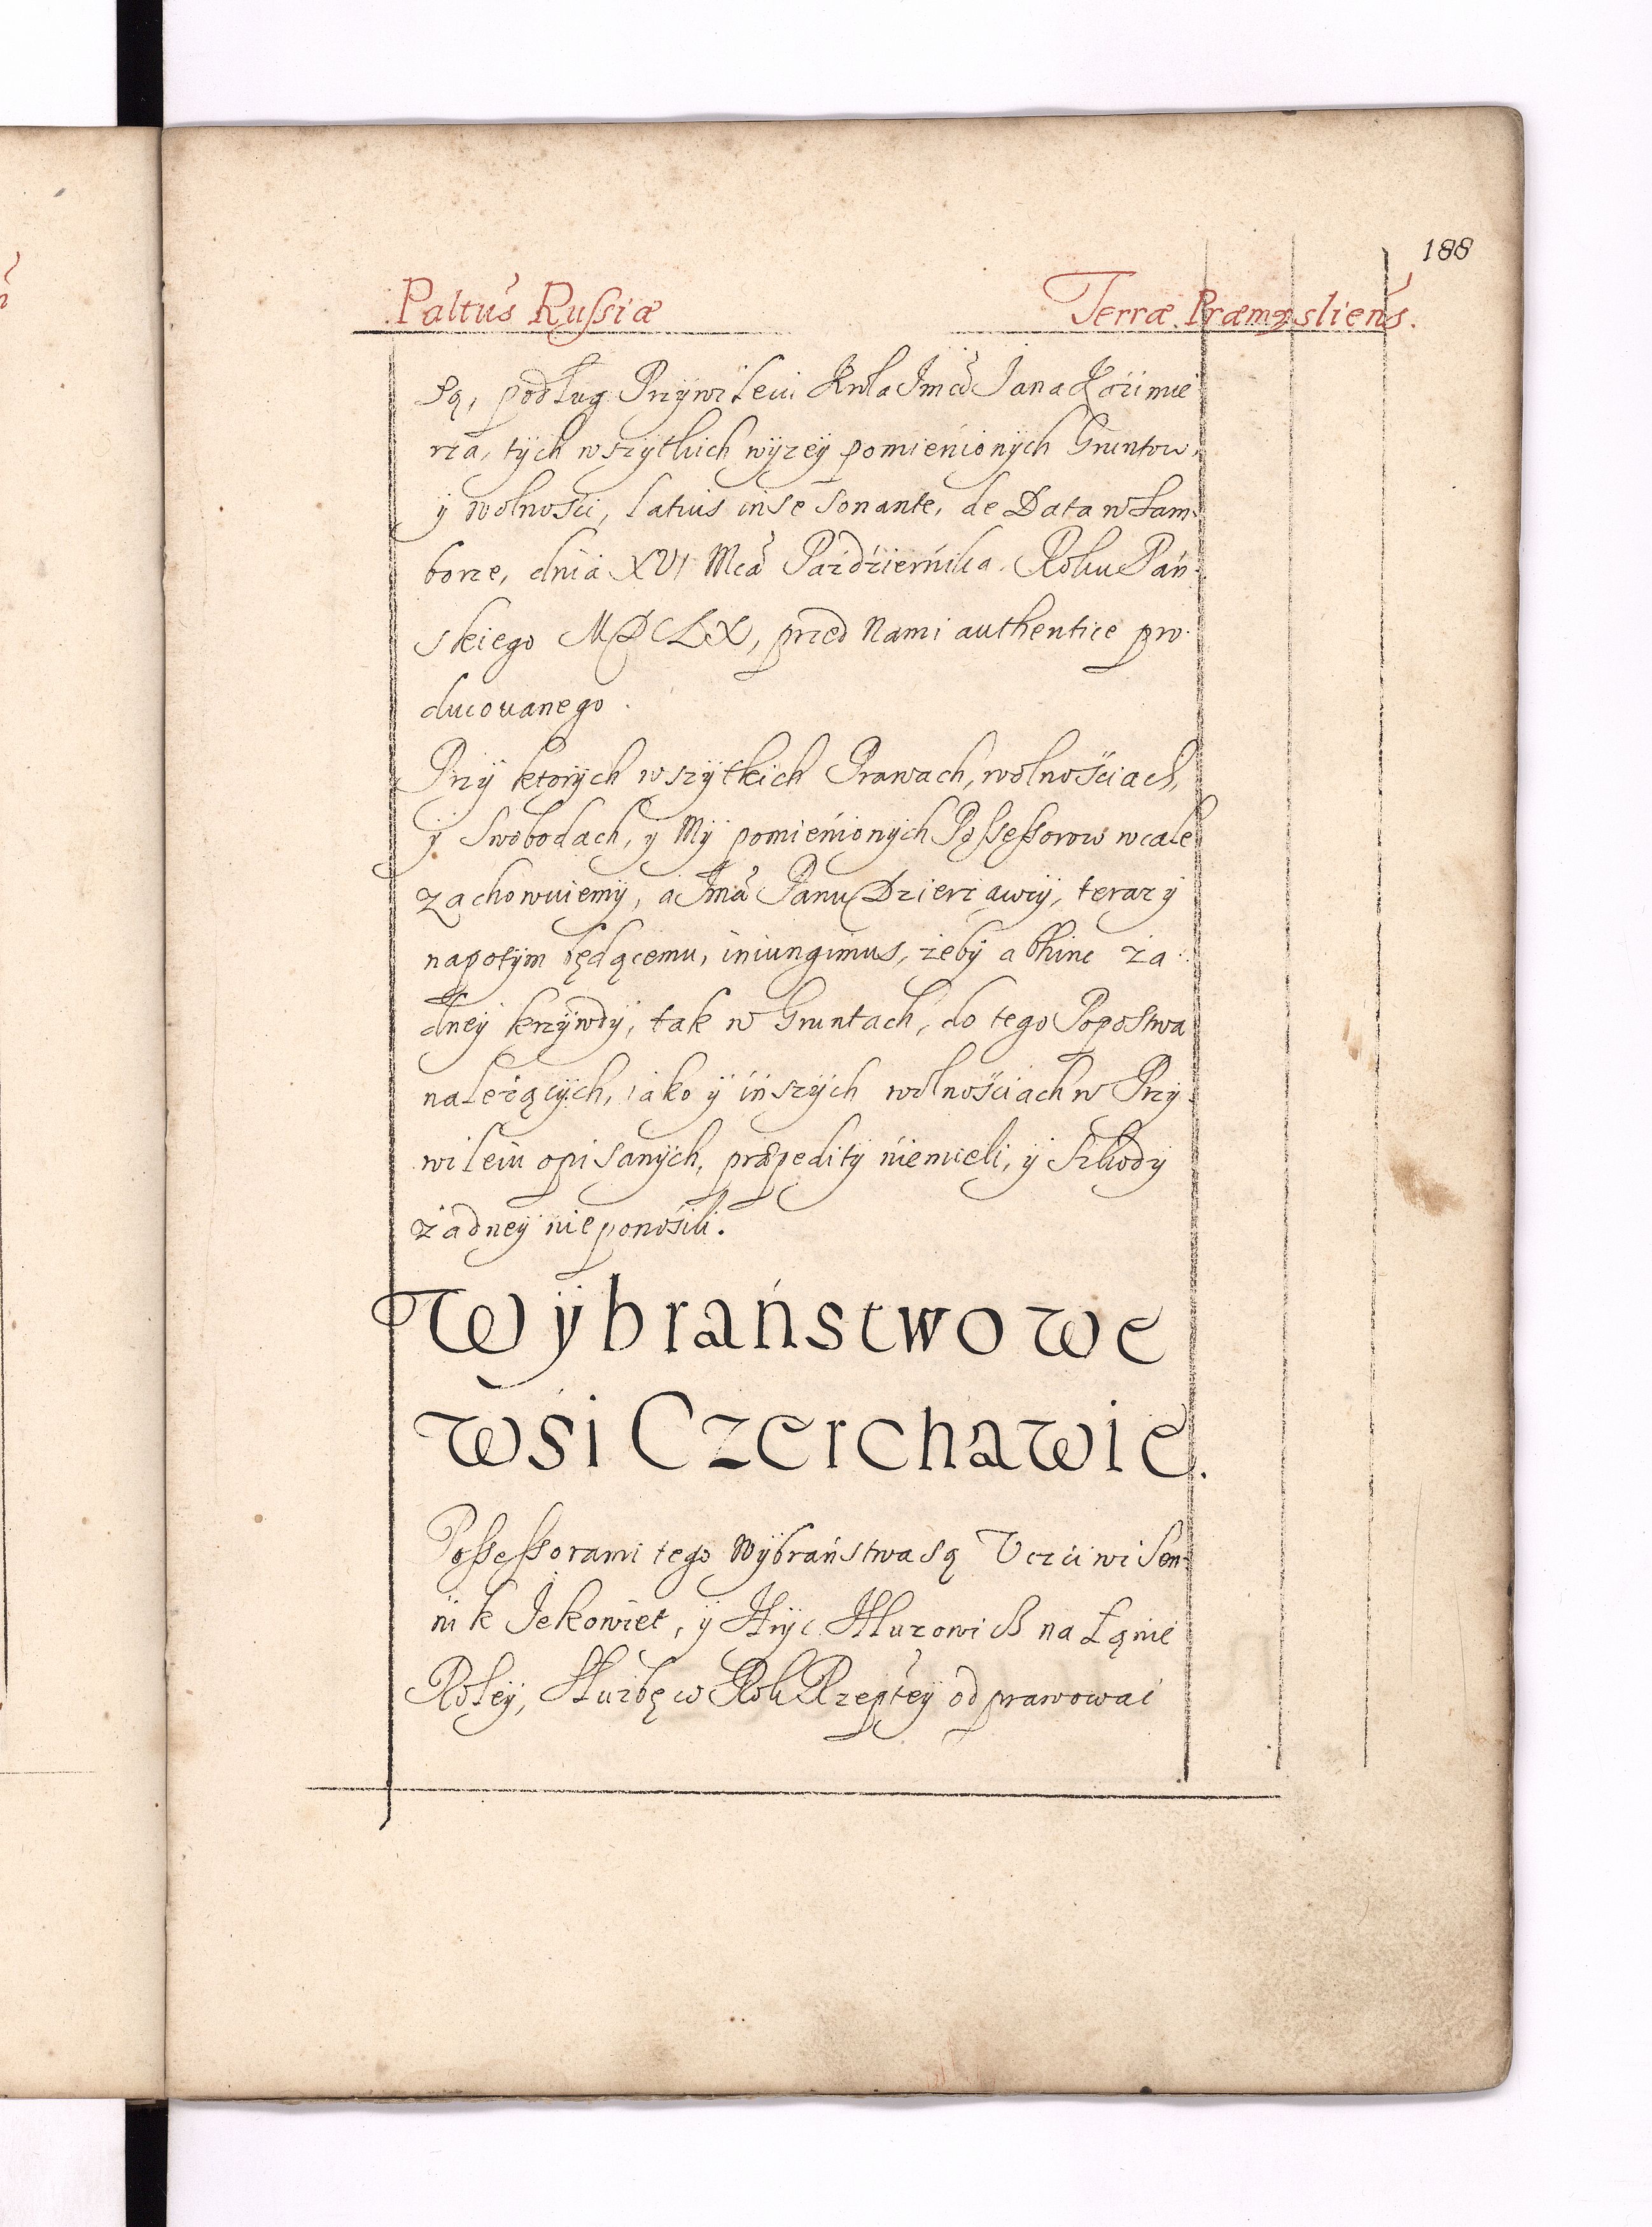 188
Paltus Russiæ Terræ Præmysliens.
są, podług Przywileiu Krola Jmci Jana Kazimie
rza, tych wszytkich wyzey pomienionych Gruntow,
y wolnosci, latius in se sonante, de Data w Sam-
borze, dnia XVI Mca Pazdziernika. Roku Pań-
skiego MDCLX, przed Nami authentice pro-
ducowanego.
Przy ktorych wszytkich Prawach, wolnościach,
y Swobodach, y My pomienionych Possessorow wcale
zachowuiemy, a Jmci Panu Dzierzawcy, teraz y
napotym będącemu, iniungimus, zeby abhinc ża-
dney krzywdy, tak w Gruntach, do tego Popostwa
należących, iako y inszych wolnościach w Przy-
wileiu opisanych, præpedity niemieli, y Szkody
żadney nieponosili.
Wybraństwo we
wsi Czerchawie.
Possessorami tego Wybraństwa są Uczciwi Sen-
nik Jekowiet, y Hryc Hlurowicz na Łanie
Roley, Służbę w Rok Rzeptey odprawować